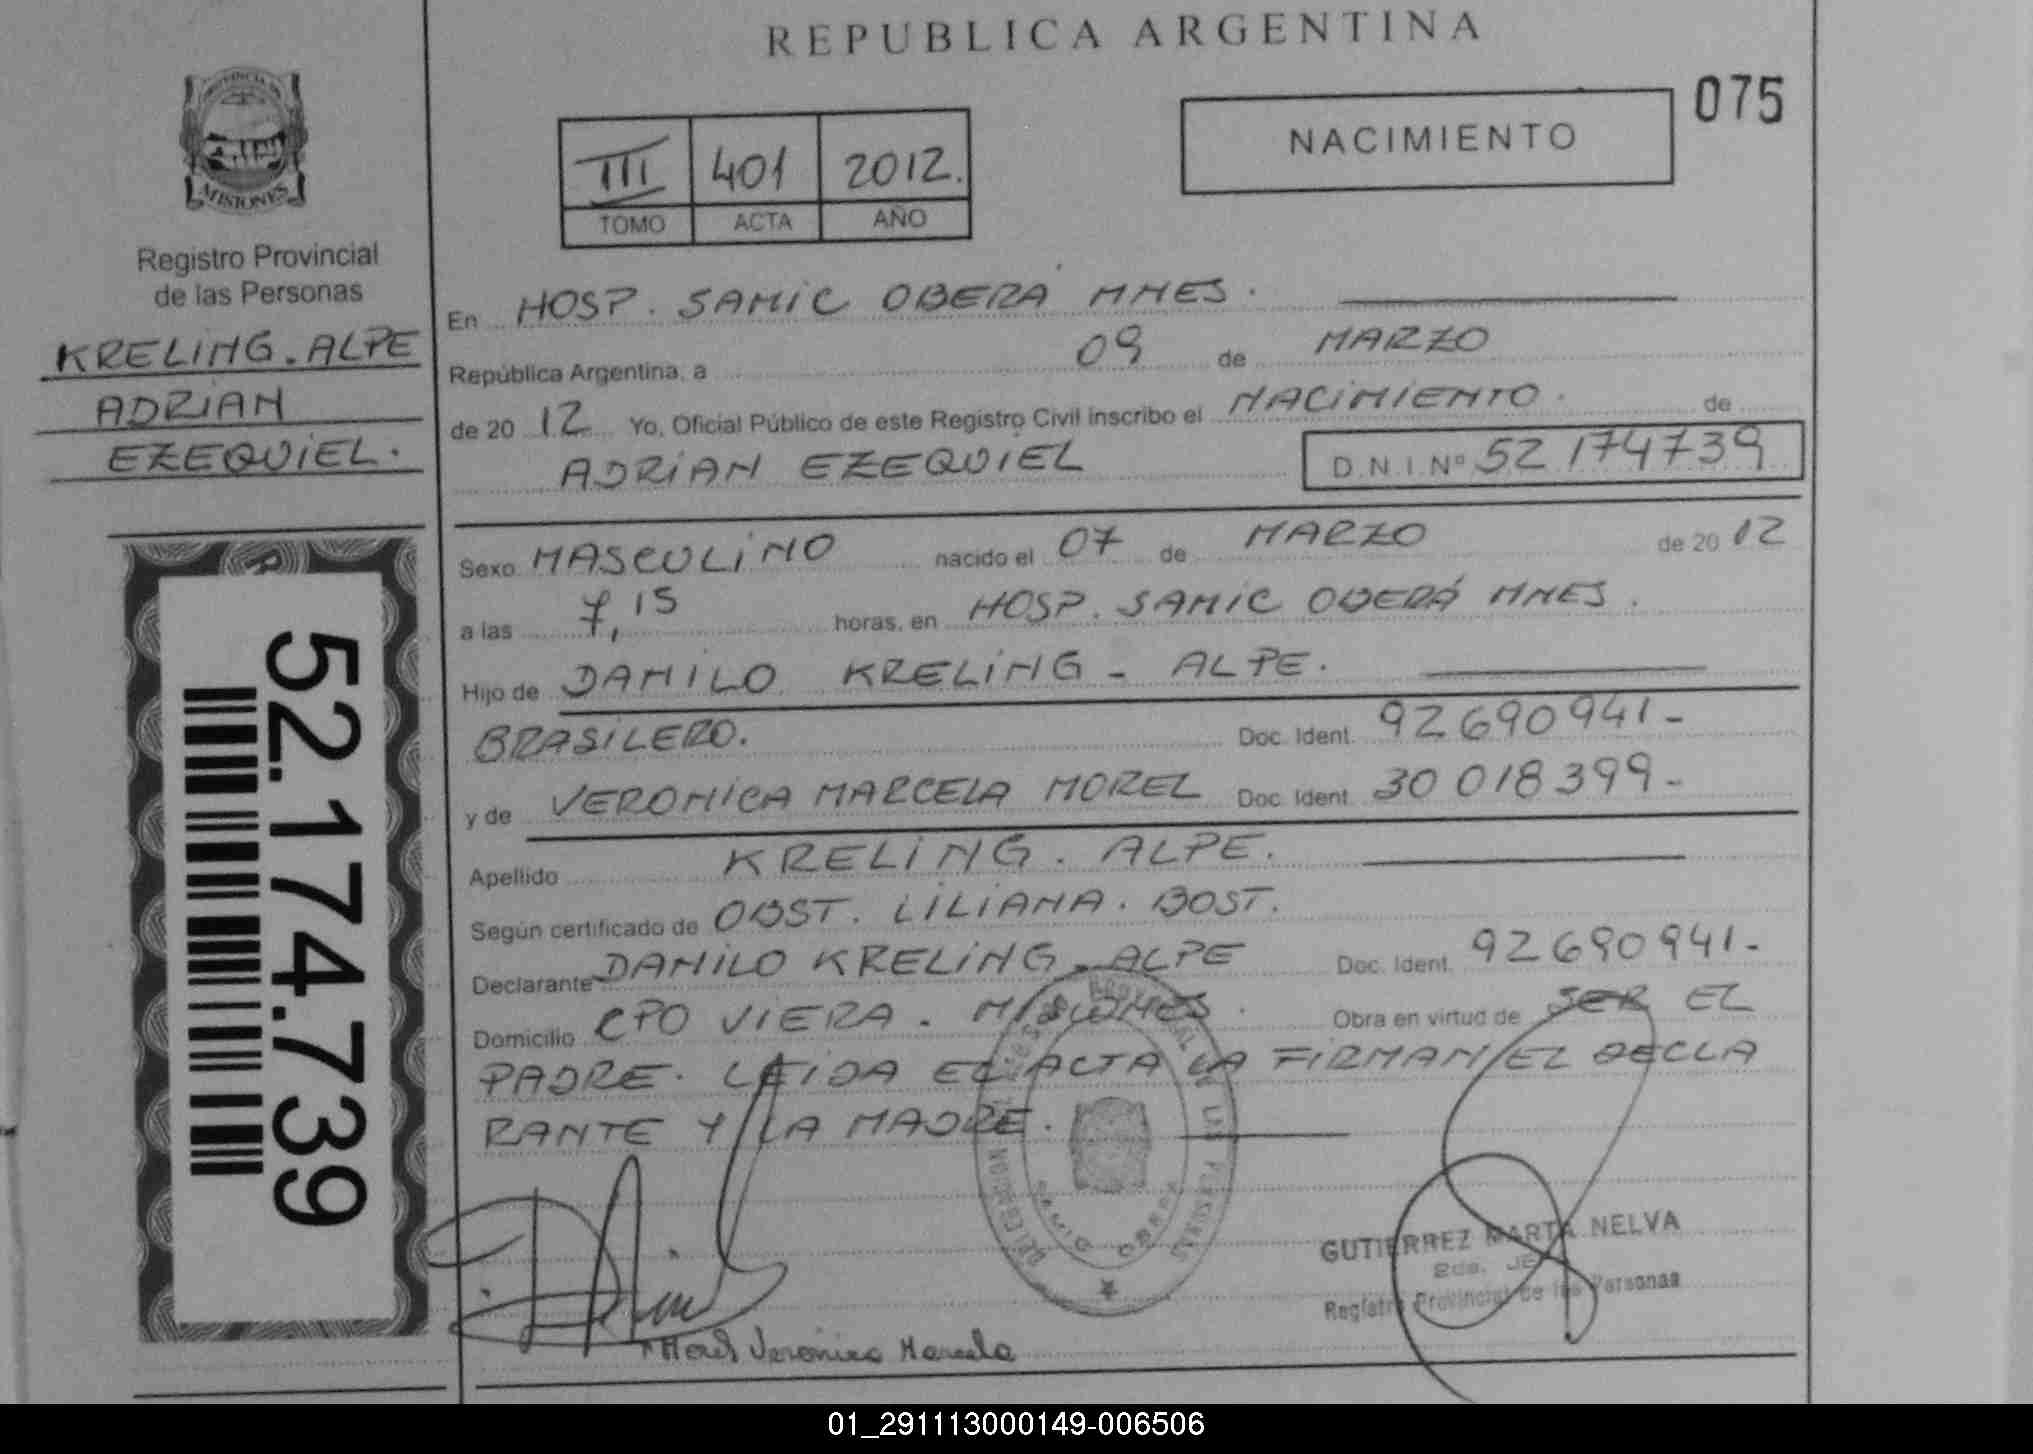 REPUBLICA ARGENTINA
075
NACIMIENTO
III 401 2012.
TOMO ACTA AÑO
MISIONES
Registro Provincial
de las Personas
KRELING-ALPE
ADRIAN
EZEQUIEL.
52.174.739
En HOSP. SAMIC OBERÁ MNES.
República Argentina, a 09 de MARZO
de 20 12 Yo, Oficial Público de este Registro Civil inscribo el NACIMIENTO. de
ADRIAN EZEQUIEL D.N.I.Nº 52 174739
Sexo MASCULINO nacido el 07 de MARZO de 20 12
a las 7,15 horas, en HOSP. SAMIC OBERÁ MNES.
Hijo de DANILO KRELING - ALPE.
BRASILERO. Doc. Ident. 92 690 941-
y de VERONICA MARCELA MOREL Doc. Ident. 30 018 399-
Apellido KRELING. ALPE.
Según certificado de OBST. LILIANA. BOST.
Declarante DANILO KRELING - ALPE Doc. Ident. 92 690 941-
Domicilio CPO VIERA. MISIONES. Obra en virtud de SER EL
PADRE. LEIDA EL ACTA LA FIRMAN EL DECLA
RANTE Y LA MADRE.
GUTIERREZ MARTA NELVA
Registro Provincial de las Personas
Morel Veronica Marcela
01_291113000149-006506